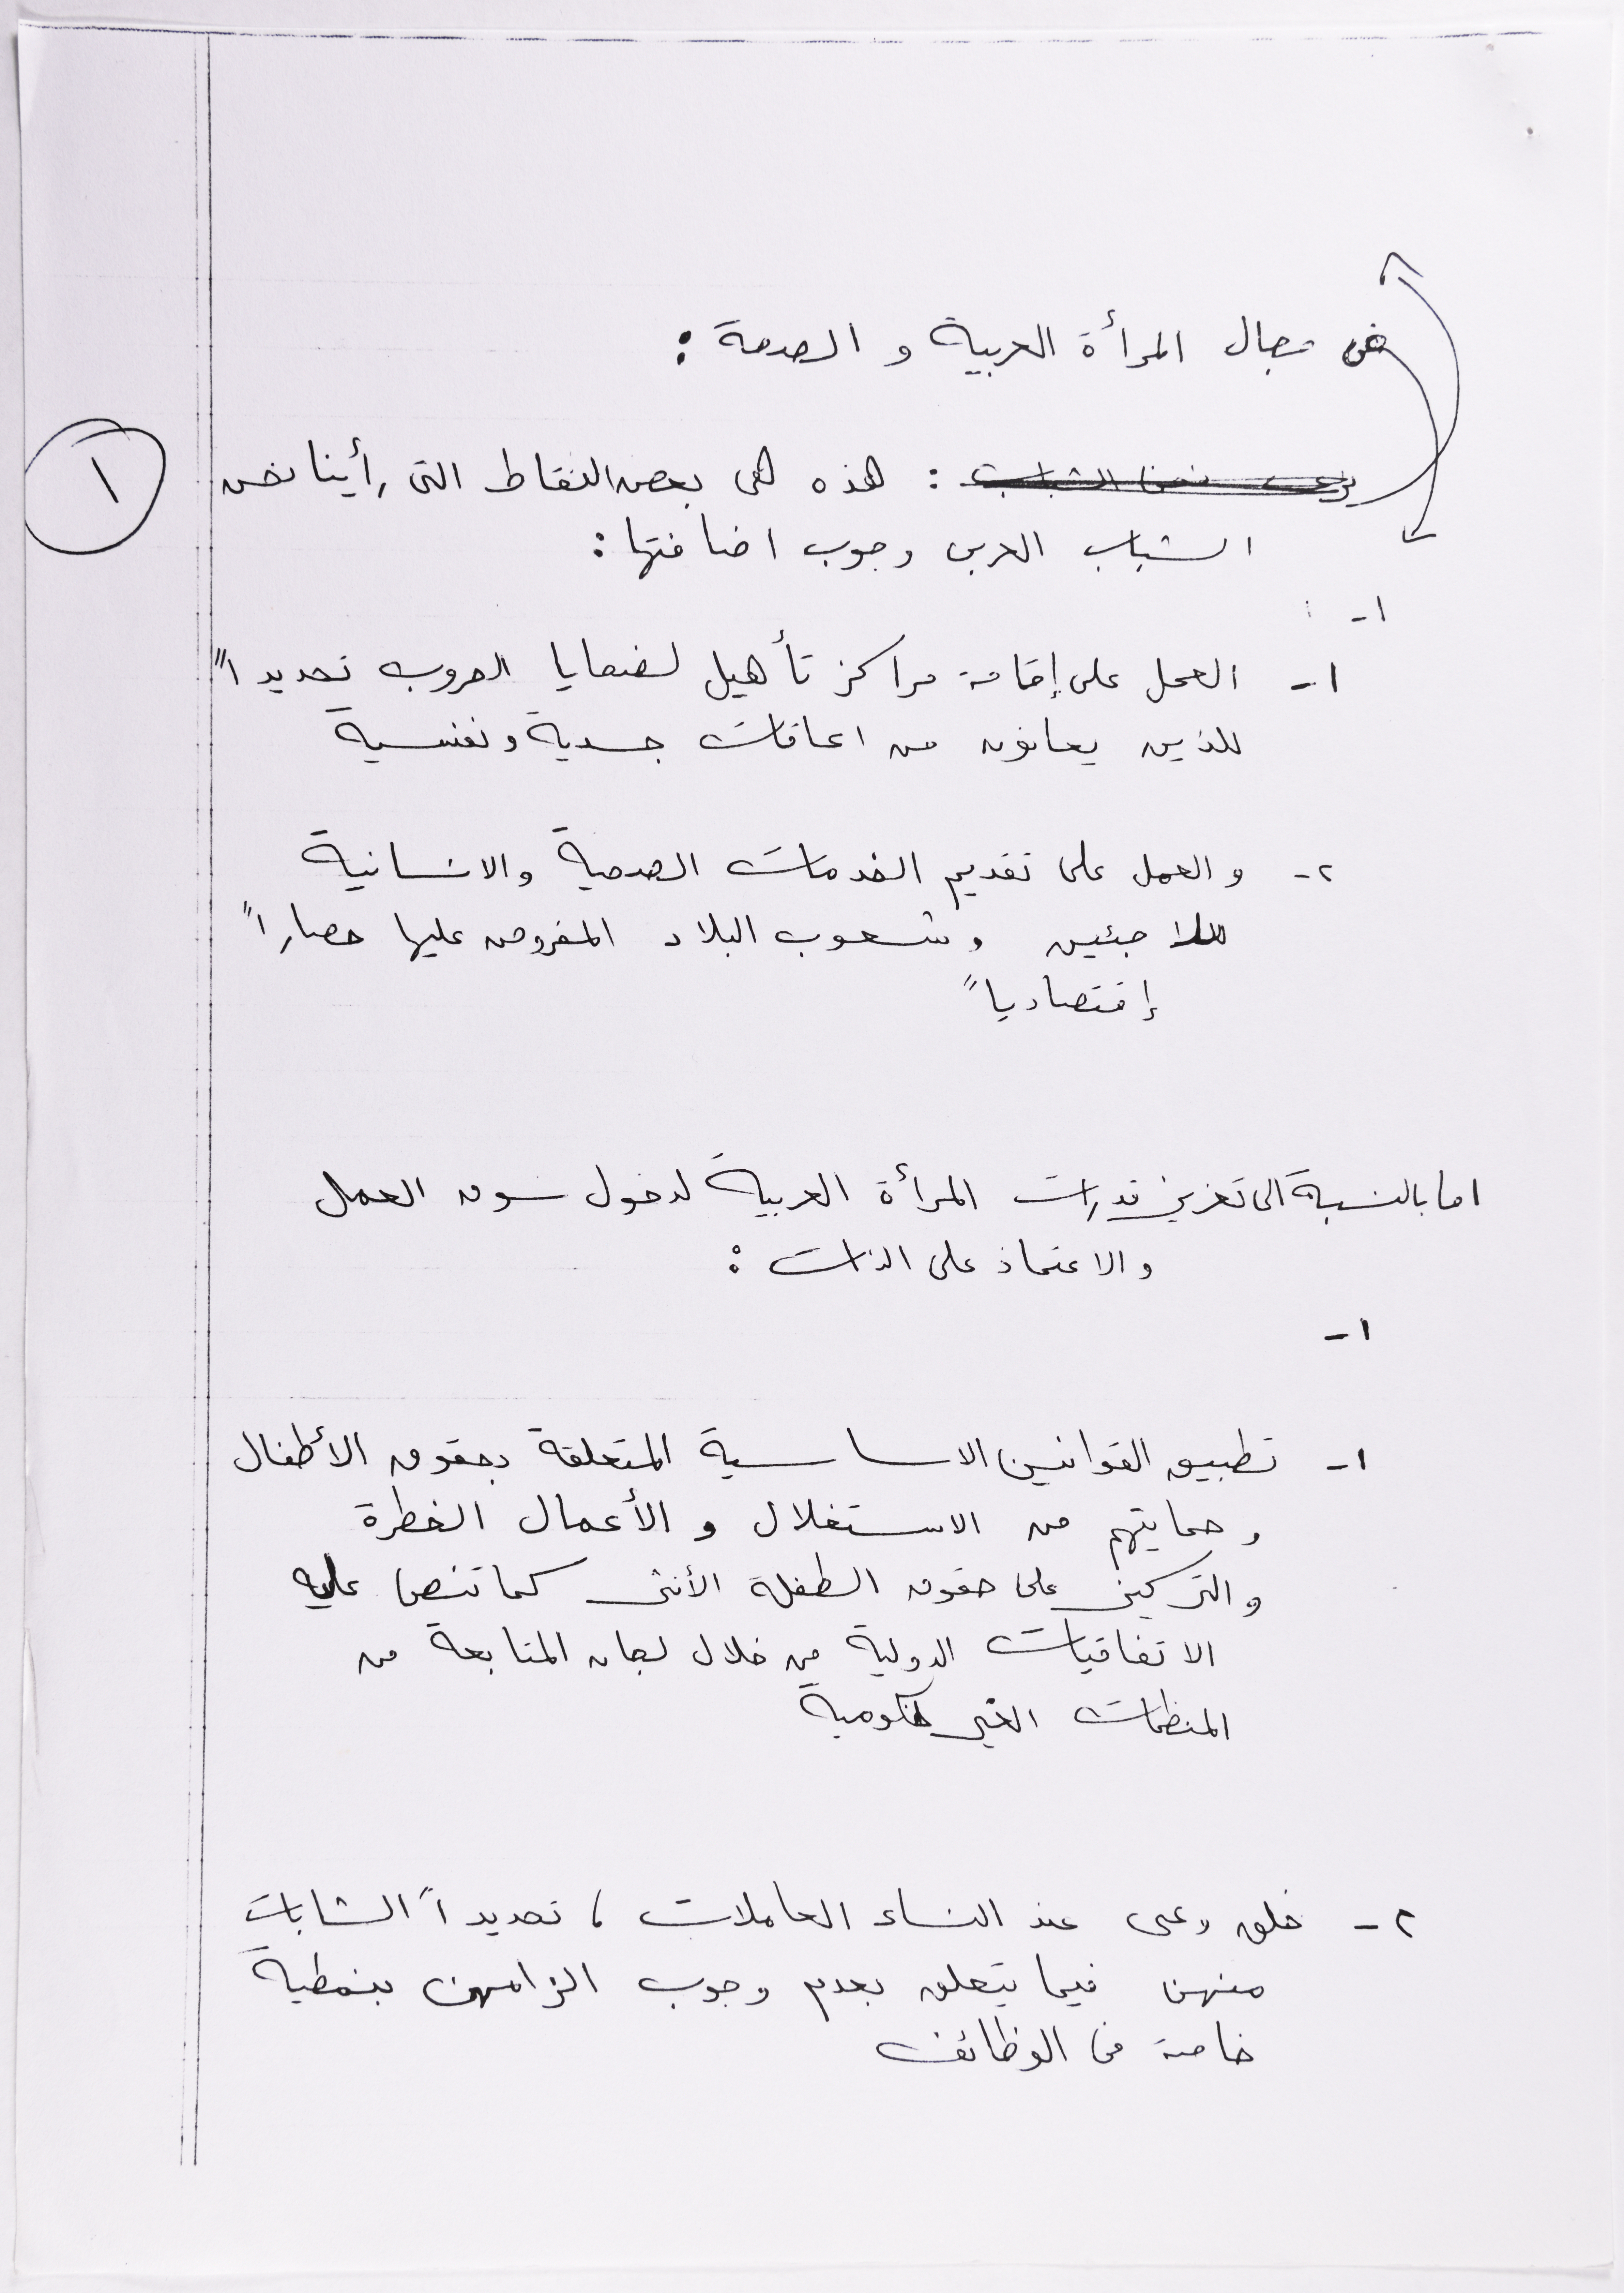 في مجال المرأة العربية و الصحة :
١
: هذه هي بعض النقاط التي رأينا نحن
الشباب العربي وجوب اضافتها :
١-
١- العمل على إقامة مراكز تأهيل لضحايا الحروب تحديداً
للذين يعانون من اعاقات جسدية ونفسية
٢- والعمل على تقديم الخدمات الصحية والانسانية
للاجئين وشعوب البلاد المفروض عليها حصاراً
إقتصادياً
اما بالنسبة الى تعزيز قدرات المرأة العربية لدخول سوق العمل
والاعتماد على الذات :
١-
١- تطبيق القوانين الاساسية المتعلقة بحقوق الأطفال
وحمايتهم من الاستغلال و الأعمال الخطرة
والتركيز على حقوق الطفلة الأنثى كما تنص عليه
الاتفاقيات الدولية من خلال لجان المتابعة من
المنظمات الغير حكومية
٢- خلق وعي عند النساء العاملات ، تحديداً الشابات
منهن فيما يتعلق بعدم وجوب الزامهن بنمطية
خاصة في الوظائف